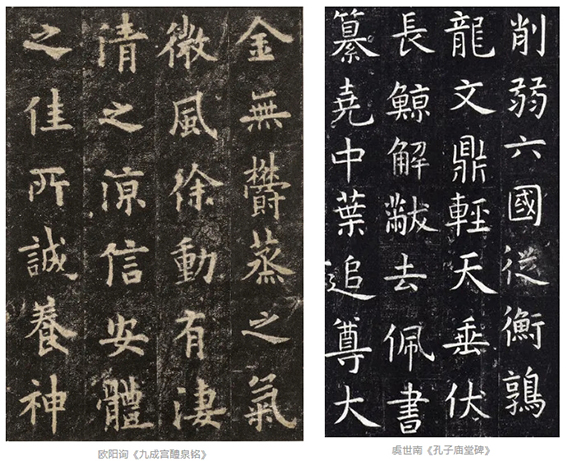 金無欝蒸之氣
微風徐動有淒
清之涼信安體
之佳所誠養神
欧阳询《九成宫醴泉铭》
削弱六國從衡鶉
龍文鼎輕天垂伏
長鯨解黻去佩書
纂堯中葉追尊大
虞世南《孔子庙堂碑》